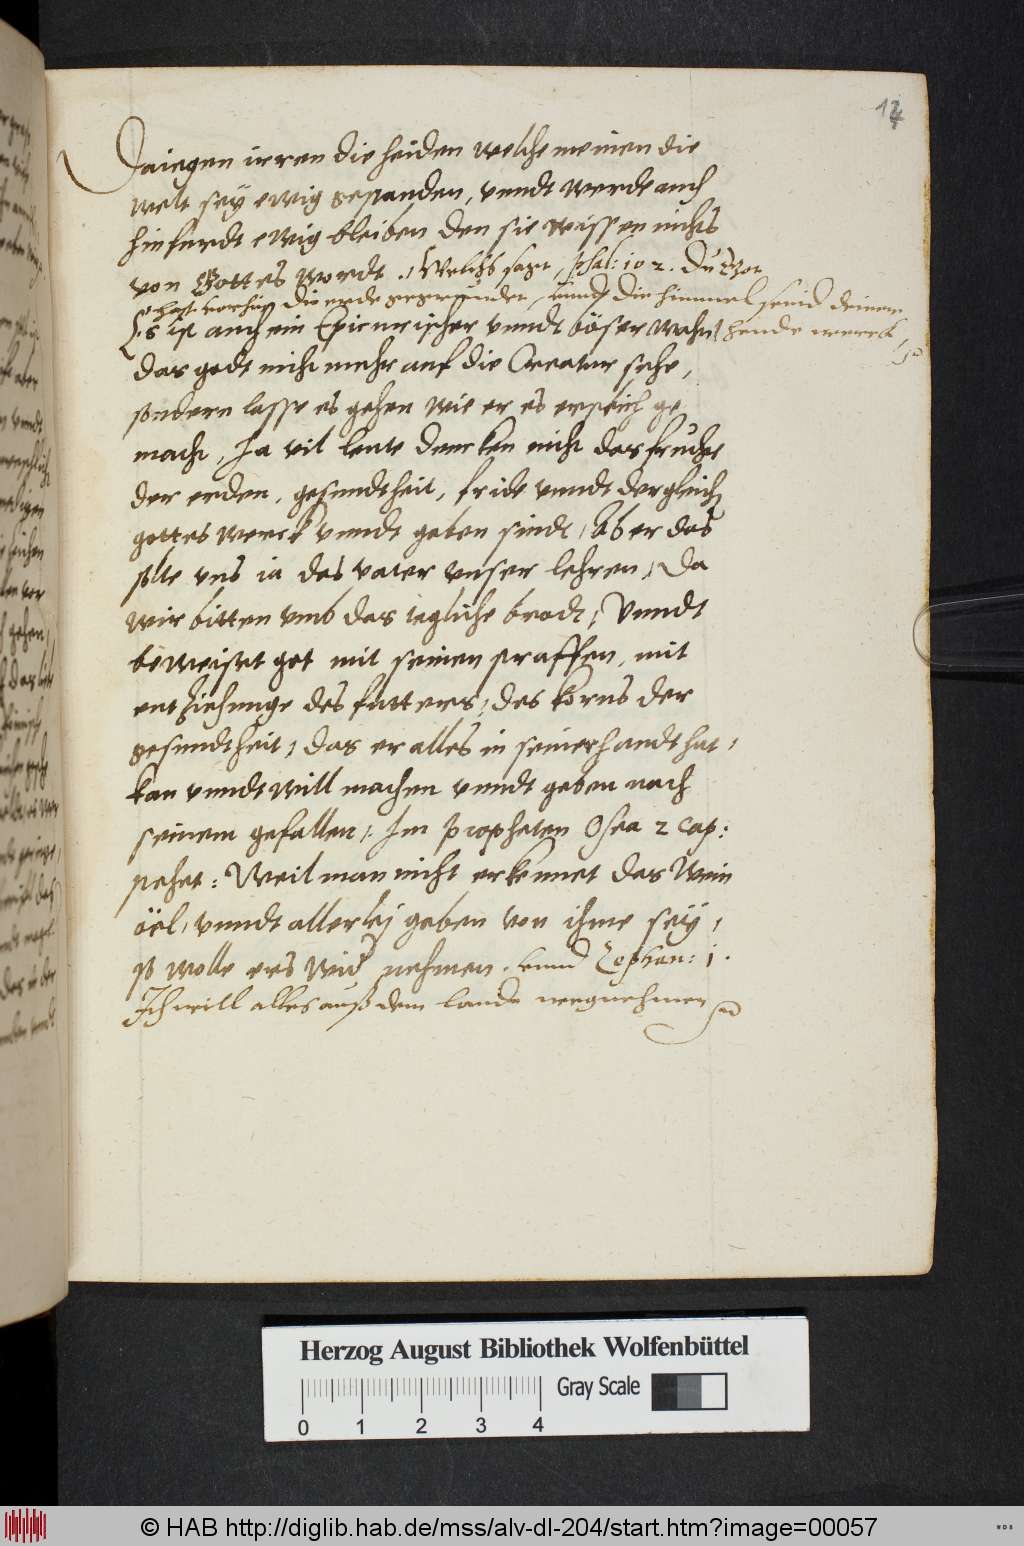 14
Daiegen irren die heiden welche meinen die
welt sey ewig gestanden, vnndt werde auch
hinfurdt ewig bleiben den sie wissen nichts
von Gottes wordt. Welchs sagt, Psal: 102. Du
hast vorhin die erde gegrundet, vnnd die himmel seind deiner
hende werck,
Es ist auch ein Epicurischer vnndt böser wahn
das godt nicht mehr auf die Creatur sehe,
sondern lasse es gehen wie er es erstlich ge
macht, Ja vil leute dencken nicht das fruchte
der erden, gesundtheit, fride vnndt dergleich
gottes werck vnndt gaben sindt, Aber das
solte vns ia das vater vnser lehren, Da
wir bitten vmb das tegliche brodt, Vnndt
beweiset got mit seinen straffen, mit
entziehunge des futters, des korns der
gesundtheit, das er alles in seiner handt hat,
kan vnndt will machen vnndt geben nach
seinem gefallen, Im propheten Osea 2 cap:
stehet: Weil man nicht erkennet das Wein
öel, vnndt allerley gaben von ihme sey,
so wolle ers wid nehmen. vnnd Zephan: 1.
Ich will alles auß dem lande wegnehmen
Herzog August Bibliothek Wolfenbüttel
0 1 2 3 4
Gray Scale
© HAB http://diglib.hab.de/mss/alv-dl-204/start.htm?image=00057